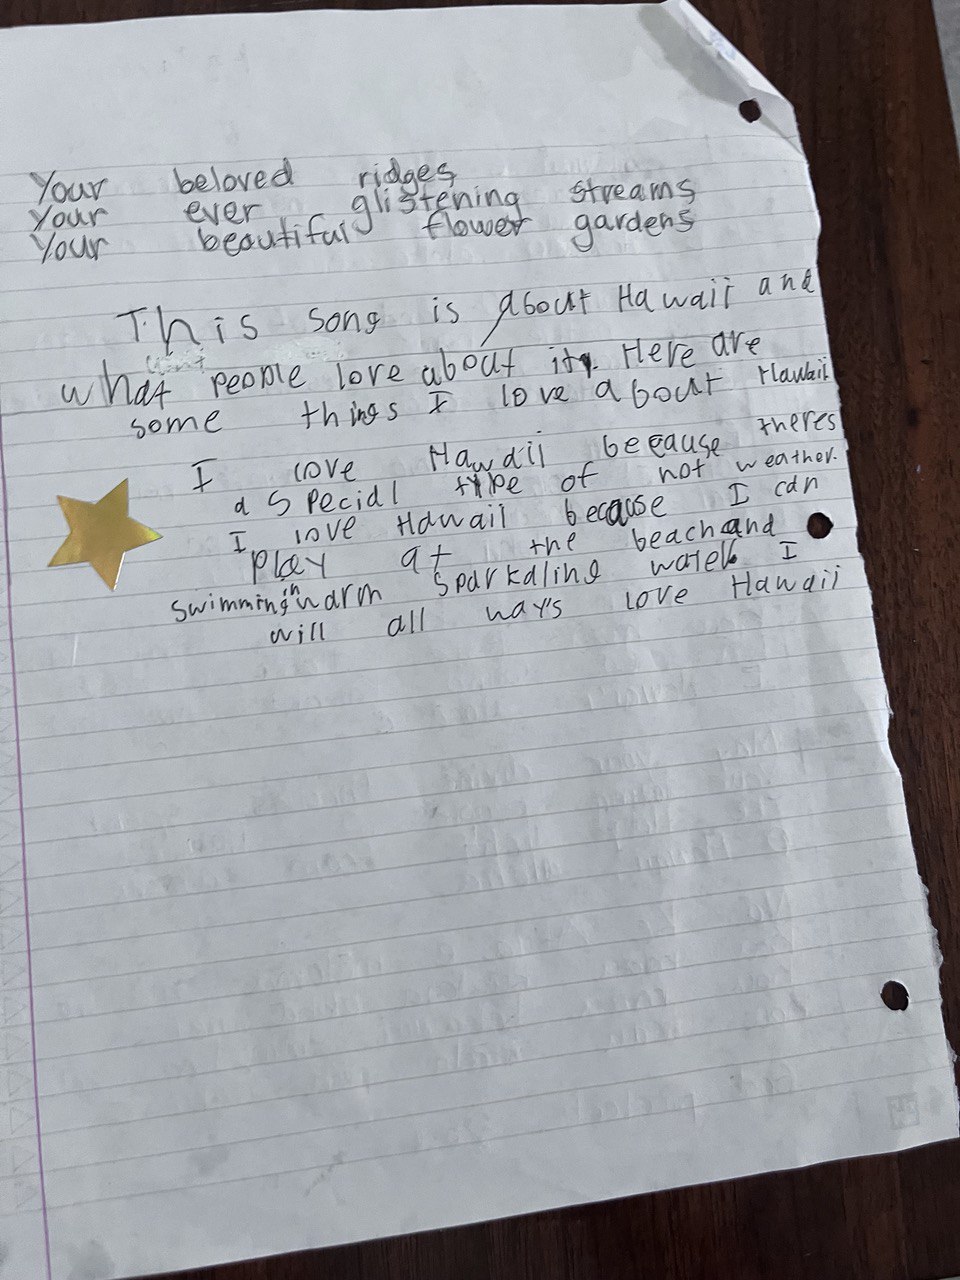 Your beloved ridges
Your ever glistening streams
Your beautiful flower gardens
This song is about Hawaii and
what people love about it. Here are
some things I love about Hawaii
I love Hawaii because theres
a special type of hot weather.
I love Hawaii because I can
play at the beach and
swimming in warm sparkdling water I
will all ways love Hawaii